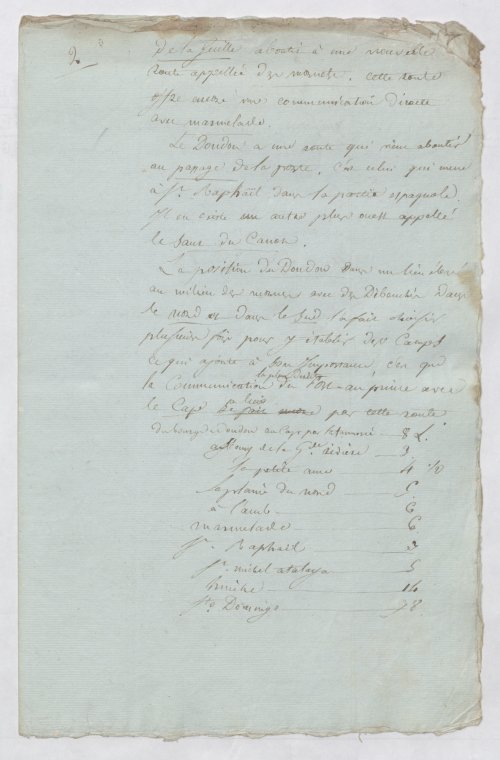 2.
de la Guille aboutit à une nouvelle
route appellée des mornets. cette route
offre encore une communication directe
avec marmelade.
Le Dondon a une route qui vient aboutir
au passage de la porte. C'est celui qui mene
à St. Raphaël dans la partie espagnole.
Il en existe un autre plus ouest appellé
le Saut du Canon.
La position du Dondon dans un lieu élevé
au milieu des mornes avec des Débouchés dans
le nord et dans le Sud la fait choisir
plusieurs fois pour y établir des Camps
ce qui ajoute à son Importance, c'est que
la Communication du Port-au-prince avec
la plus directe
le Cap a lieu par cette route
Du bourg du Dondon au Cap par 8 L.
au bourg de la Gde. rivière 3
la petite anse 4 1/2
la plaine du nord 5
à Limbé 6
marmelade 6
St. Raphaël 3
St. michel atalaya 5
hinche 14
Sto. Domingo 78